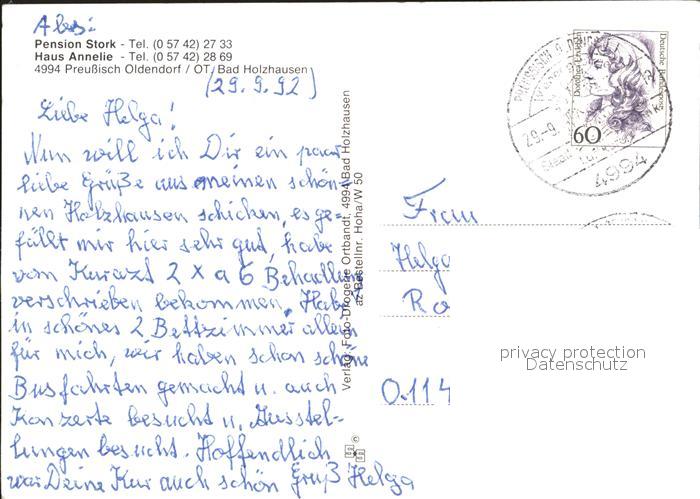 Abs:
Pension Stork - Tel. (0 57 42) 27 33
Haus Annelie - Tel. (0 57 42) 28 69
4994 Preußisch Oldendorf / OT. Bad Holzhausen
(29.9.92)
Liebe Helga!
Nun will ich Dir ein paar
liebe Grüße aus meinen schön-
nen Holzhausen schicken, es ge-
fällt mir hier sehr gut, habe
vom Kurazt 2 x a 6 Behadlung
verschrieben bekommen. Habe
in schönes 2 Bettzimmer allein
für mich, wir haben schon schöne
Busfahrten gemacht u. auch
Konzerte besucht u. Ausstel-
lungen besucht. Hoffendlich
war Deine Kur auch schön Gruß Helga
Verlag: Foto-Drogerie Ortbandt, 4994 Bad Holzhausen
az Bestellnr. Hoha/W 50
Deutsche Bundespost
Dorothea Erxleben
60
29.-9.
4994
Frau
Helga
Ro
0.114
privacy protection
Datenschutz